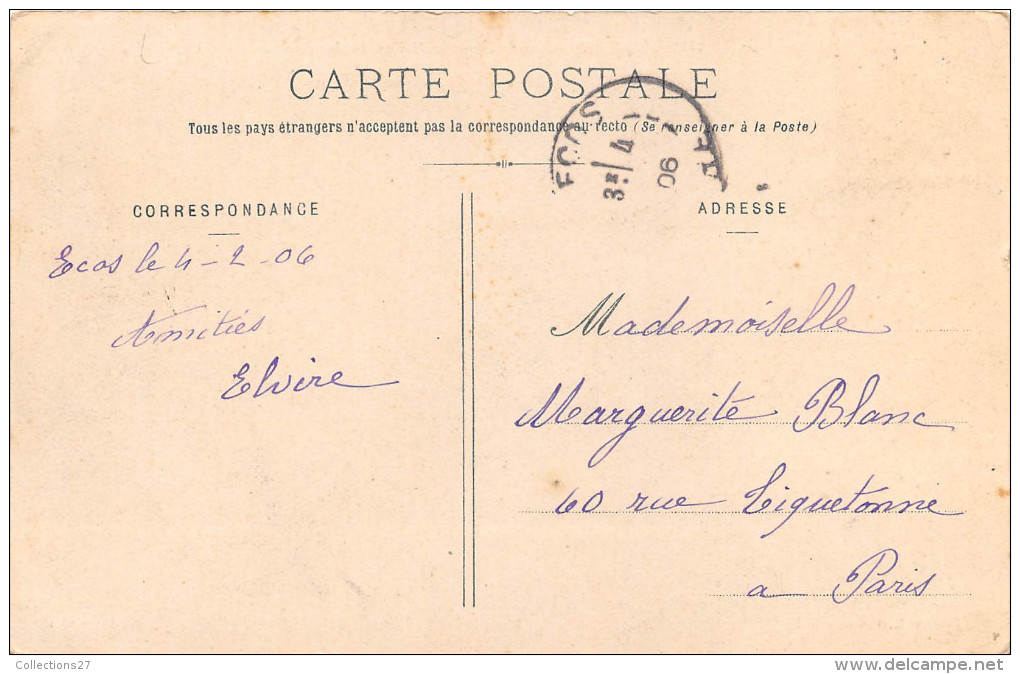 CARTE POSTALE
Tous les pays étrangers n'acceptent pas la correspondance au recto (Se renseigner à la Poste)
ECOS
3E/ 4
06
CORRESPONDANCE
ADRESSE
Ecos le 4-2-06
Amitiés
Elvire
Mademoiselle
Marguerite Blanc
60 rue Tiquetonne
a Paris
Collections27
www.delcampe.net